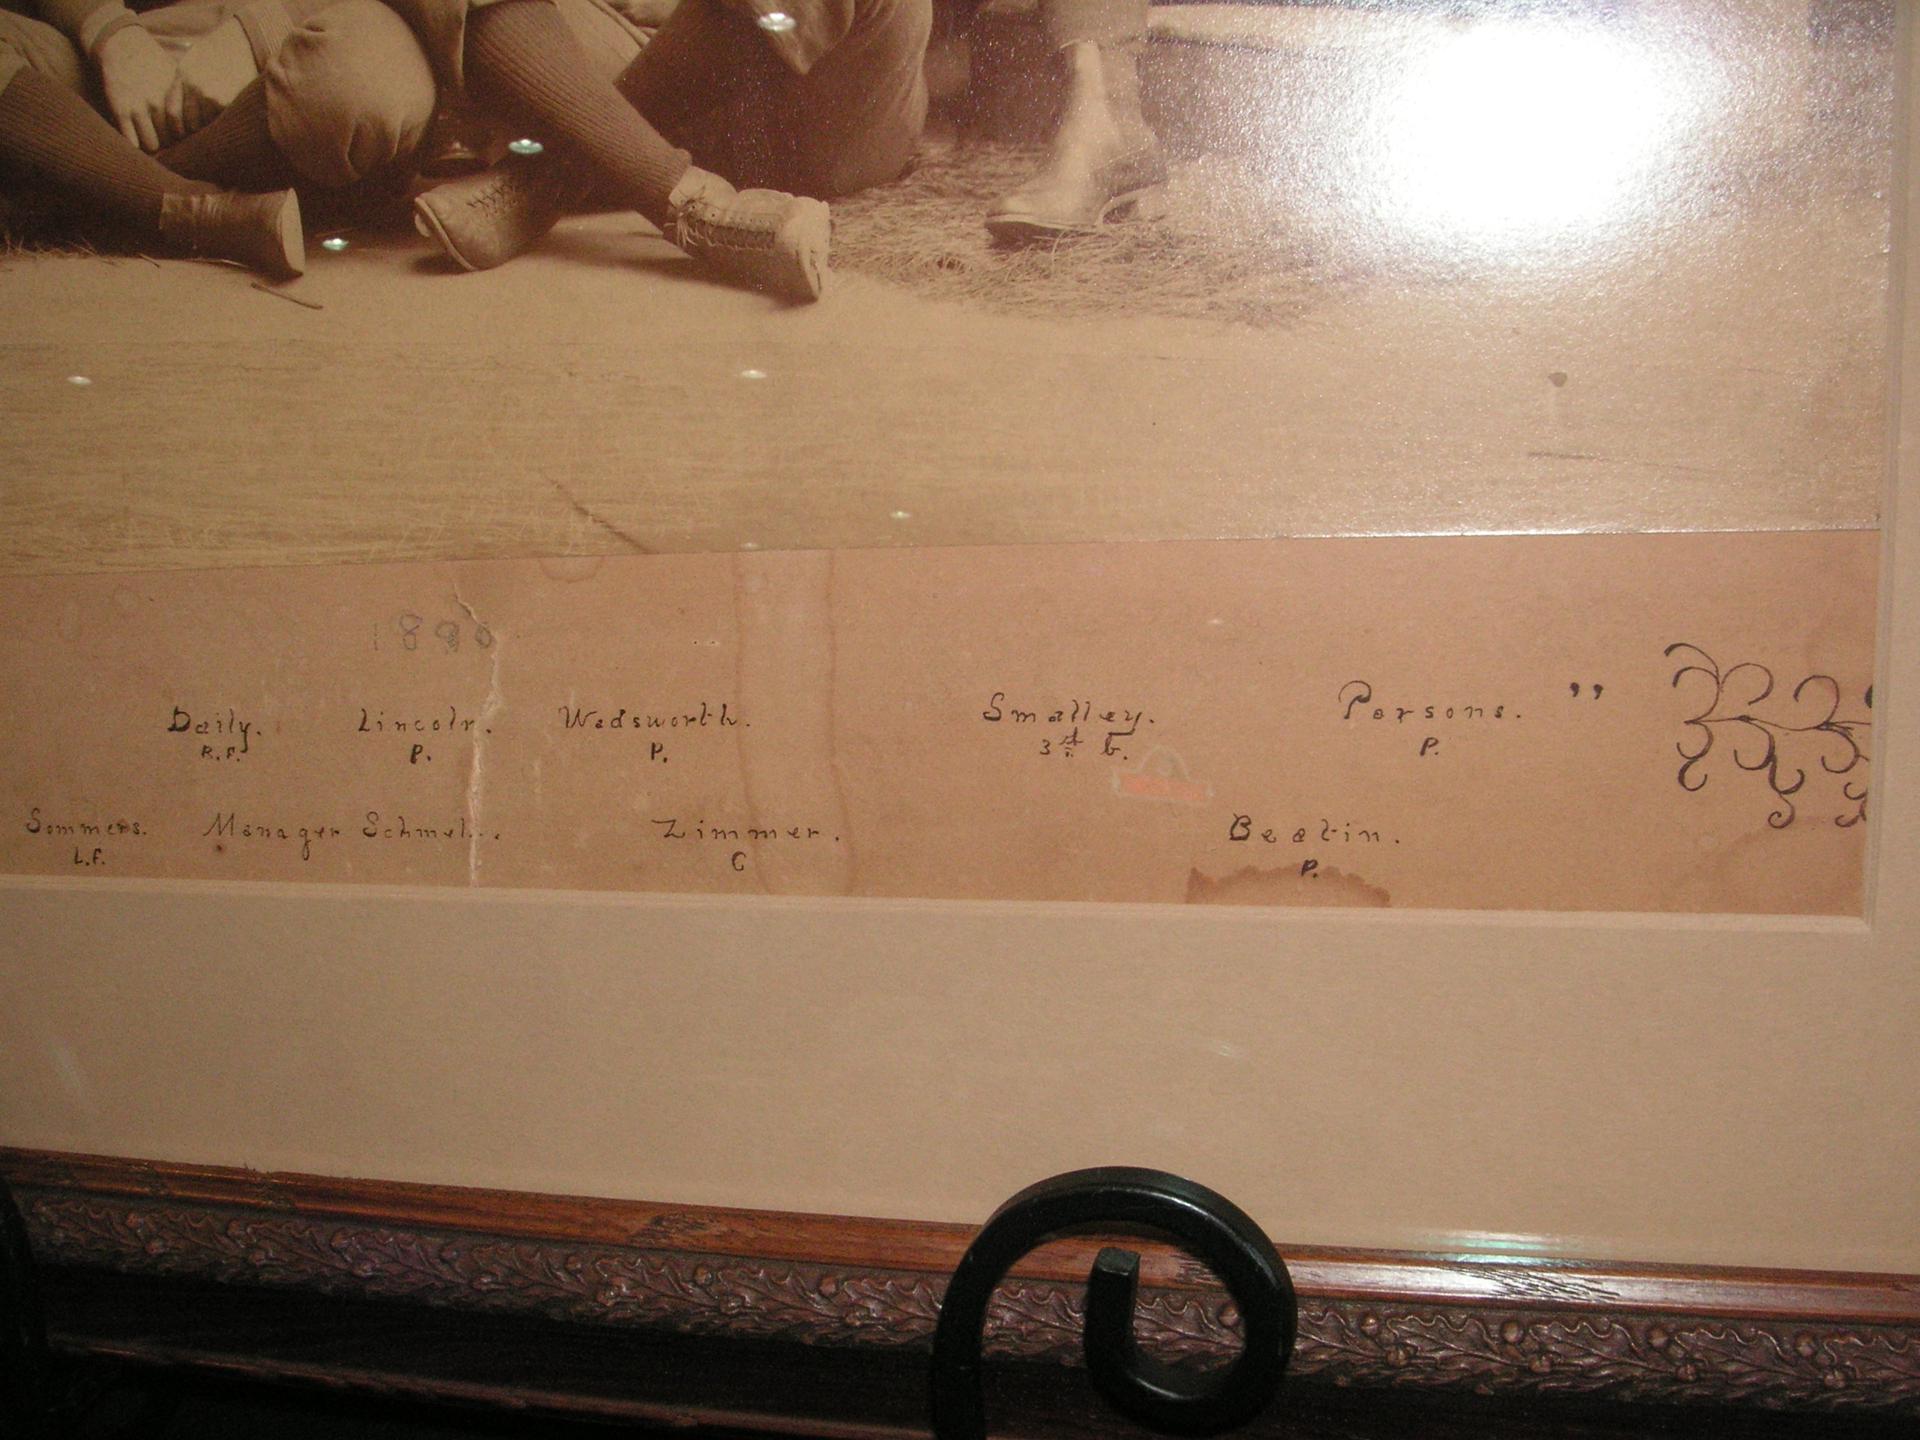 1890
Daily. Lincoln. Wadsworth. Smalley. Parsons. ”
R.F. P. P. 3rd b. P.
Sommers. Manager Schmel.. Zimmer. Beatin.
L.F. C P.